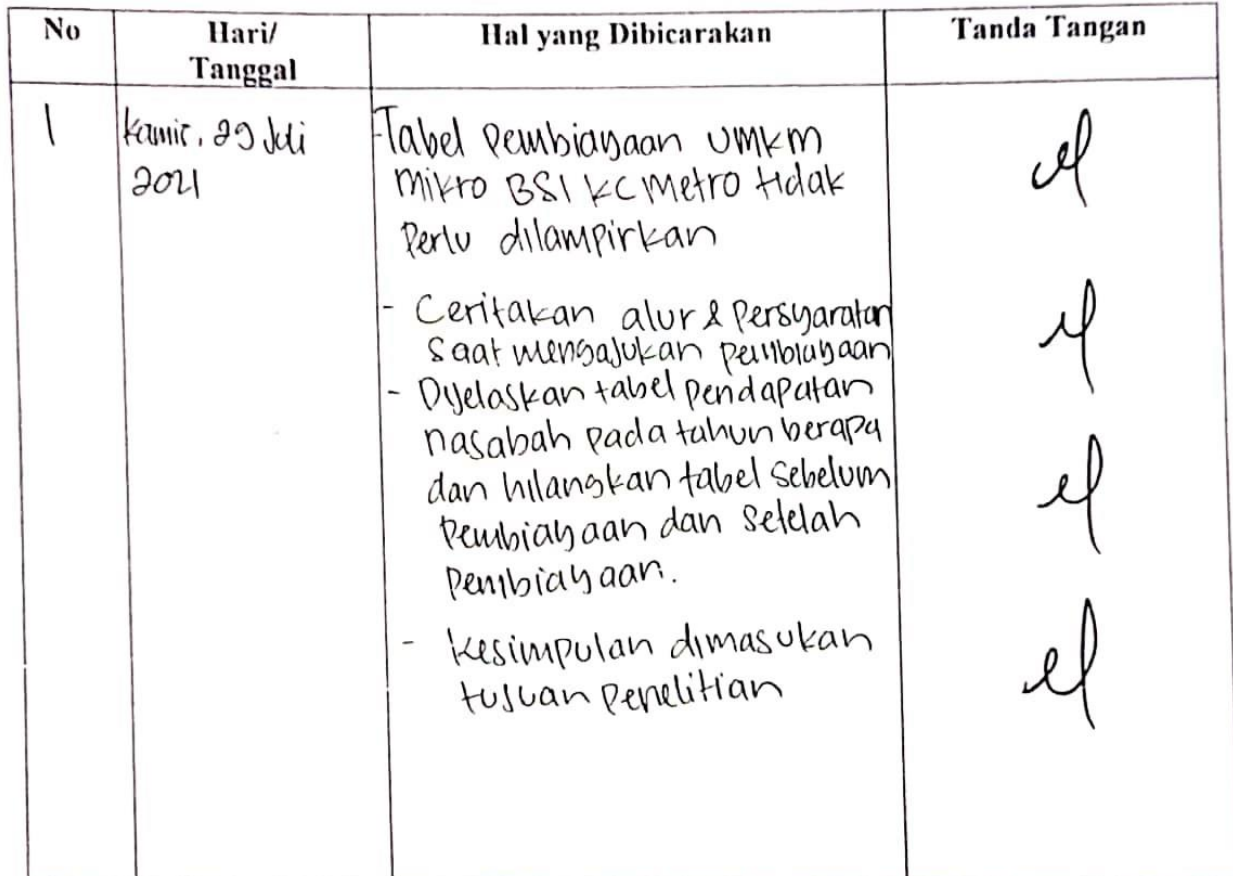 No Hari/ Tanggal Hal yang Dibicarakan Tanda Tangan
1 Kamis, 29 Juli 2021
- Tabel Pembiayaan UMKM
Mikro BSI KC Metro tidak
Perlu dilampirkan
- Ceritakan alur & Persyaratan
Saat mengajukan pembiayaan
- Dijelaskan tabel pendapatan
nasabah pada tahun berapa
dan hilangkan tabel sebelum
Pembiayaan dan setelah
Pembiayaan.
- Kesimpulan dimasukan
tujuan penelitian